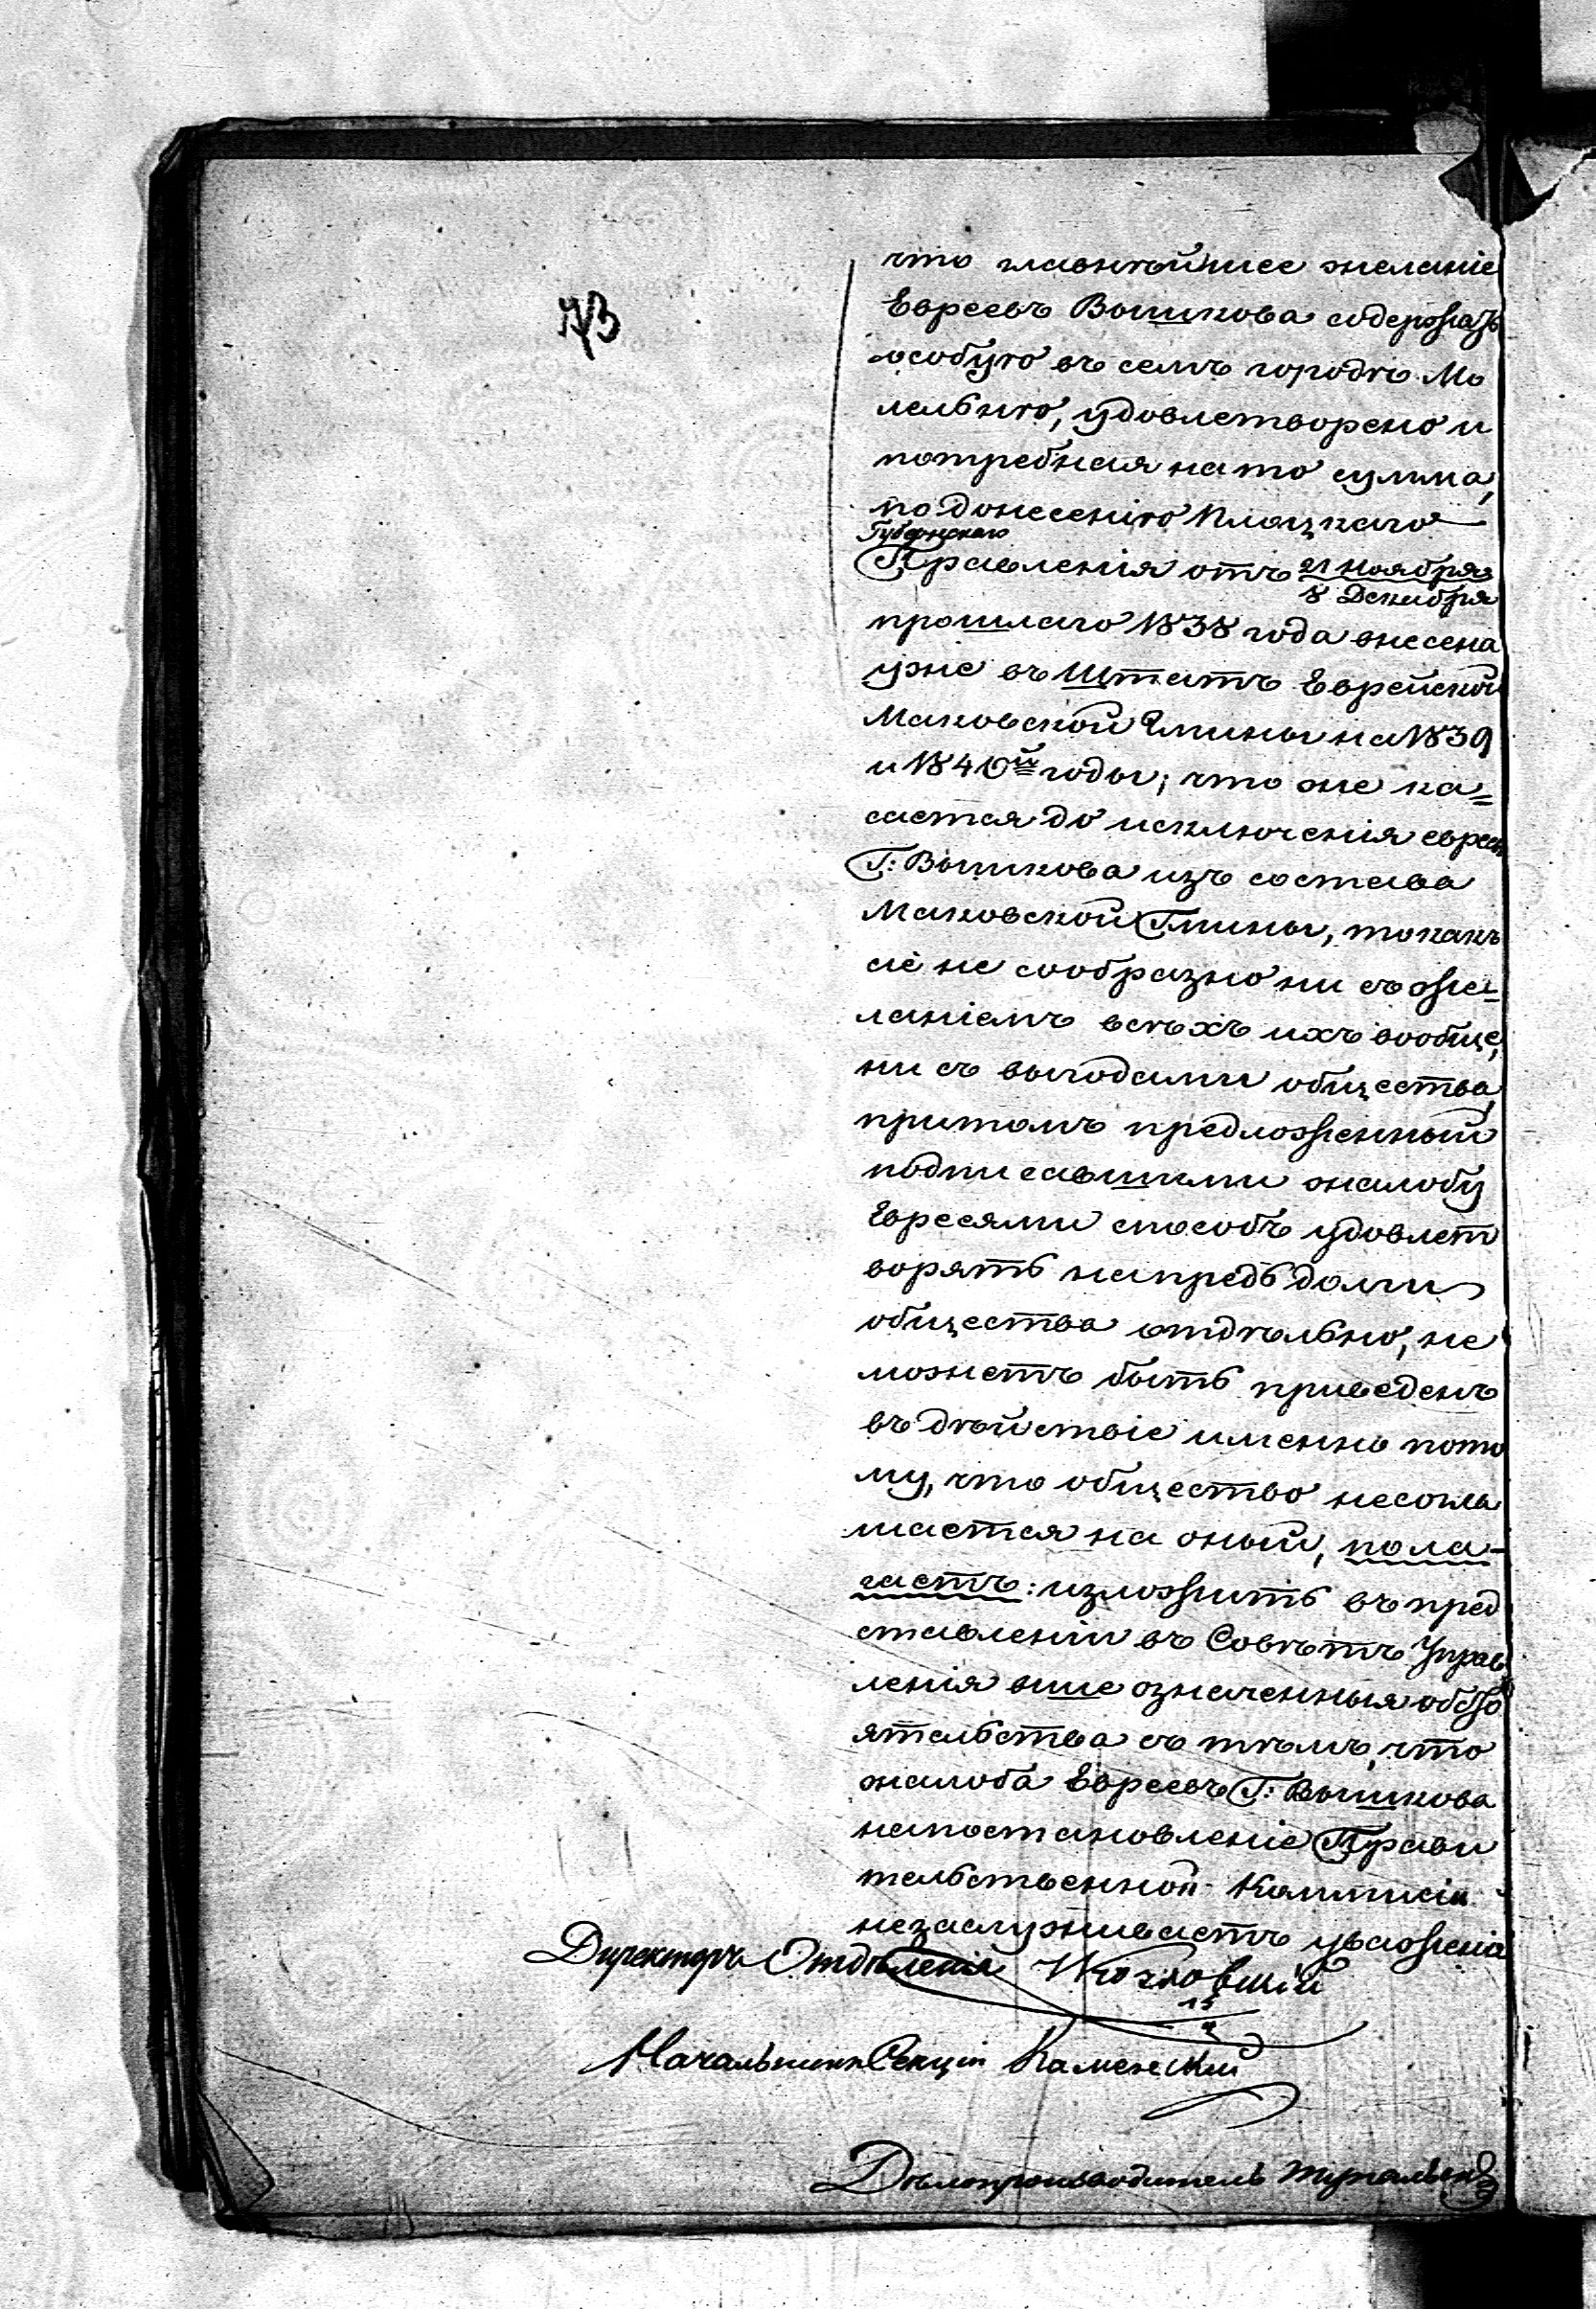 73
что главнѣйшее желаніе
Евреевъ Вышкова содержать
особую въ семъ городѣ Мо
лельню, удовлетворено и
потребная на то сумма,
по донесенію Плоцкаго
Губернскаго
Правленія отъ 21 Ноября
8 Декабря
прошлаго 1838 года внесена
уже въ Штатъ Еврейской
Маковской Гмины на 1839
и 1840й годы; что же ка=
сается до исключенія евреевъ
Г: Вышкова изъ состава
Маковской Гмины, то какъ
сіе не сообразно ни съ же=
ланіемъ всѣхъ ихъ вообще,
ни съ выгодами общества,
притомъ предложенный
подписавшими жалобу
Евреями способъ удовлет
ворять напредь долги
общества отдѣльно, не
можетъ быть приведенъ
въ дѣйствіе именно пото
му, что общество несогла
шается на оный, пола-
гаетъ: изложить въ пред
ставленіи въ Совѣтъ Управ
ленія выше означенныя обсто
ятельства съ тѣмъ, что
жалоба Евреевъ Г: Вышкова
на постановленіе Прави
тельственной Коммисіи
незаслуживаетъ уваженія
Директоръ Отдѣленія Козловскій
Начальникъ Секціи Каменскій
Дѣлопроизводитель